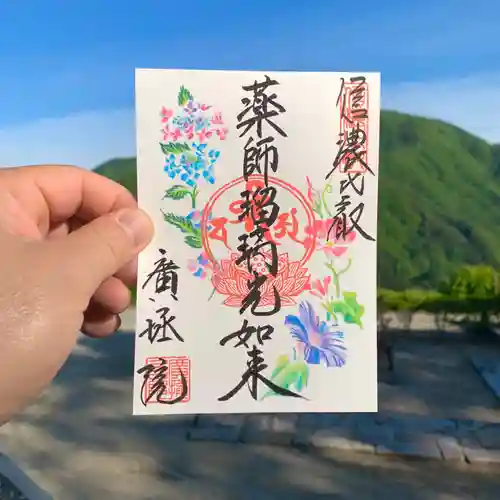 信濃比叡
薬師瑠璃光如来
廣拯院